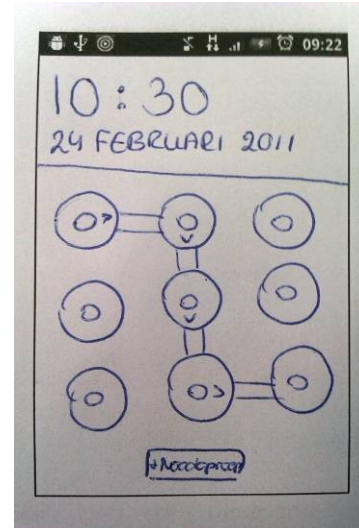 H 09:22
10:30
24 FEBRUARI 2011
Noodoproep